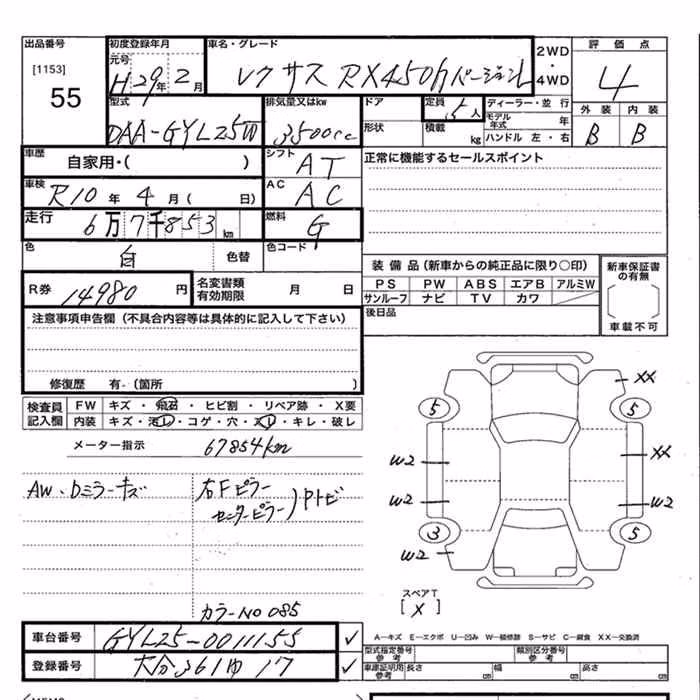 出品番号
[1153]
55
初度登録年月
元号
H29年2月
車名・グレード
レクサス RX450h バージョンL
2WD
・
4WD
評価点
4
外装 内装
B B
型式
DAA-GYL25W
排気量又はkw
3500cc
ドア
形状
定員 5人
積載 kg
ディーラー・並行
モデル年式 年
ハンドル 左・右
車歴
自家用・( )
シフト AT
正常に機能するセールスポイント
車検
R10年4月( 日)
AC AC
走行
6万7千853km
燃料 G
色
白
色替
色コード
R券
14980円
名変書類
有効期限
月 日
装備品(新車からの純正品に限り○印)
PS PW ABS エアB アルミW
サンルーフ ナビ TV カワ
後日品
新車保証書
の有無
車載不可
注意事項申告欄(不具合内容等は具体的に記入して下さい)
修復歴 有-(箇所 )
検査員
記入欄
FW キズ・飛石・ヒビ割・リペア跡・X要
内装 キズ・汚レ・コゲ・穴・スレ・キレ・破レ
メーター指示 67854km
AW・Dミラーキズ
右Fピラー
センターピラー)Pトビ
カラーNO 085
XX
5 5
XX
W2
W2 W2
3 5
W2
スペアT
[X]
車台番号 GYL25-0011155 ✓
登録番号 大分361ゆ17 ✓
A−キズ E−エクボ U−凹み W−補修跡 S−サビ C−腐食 XX−交換済
型式指定番号
参考
類別区分番号
参考
車庫証明用
参考
長さ cm 幅 cm 高さ cm